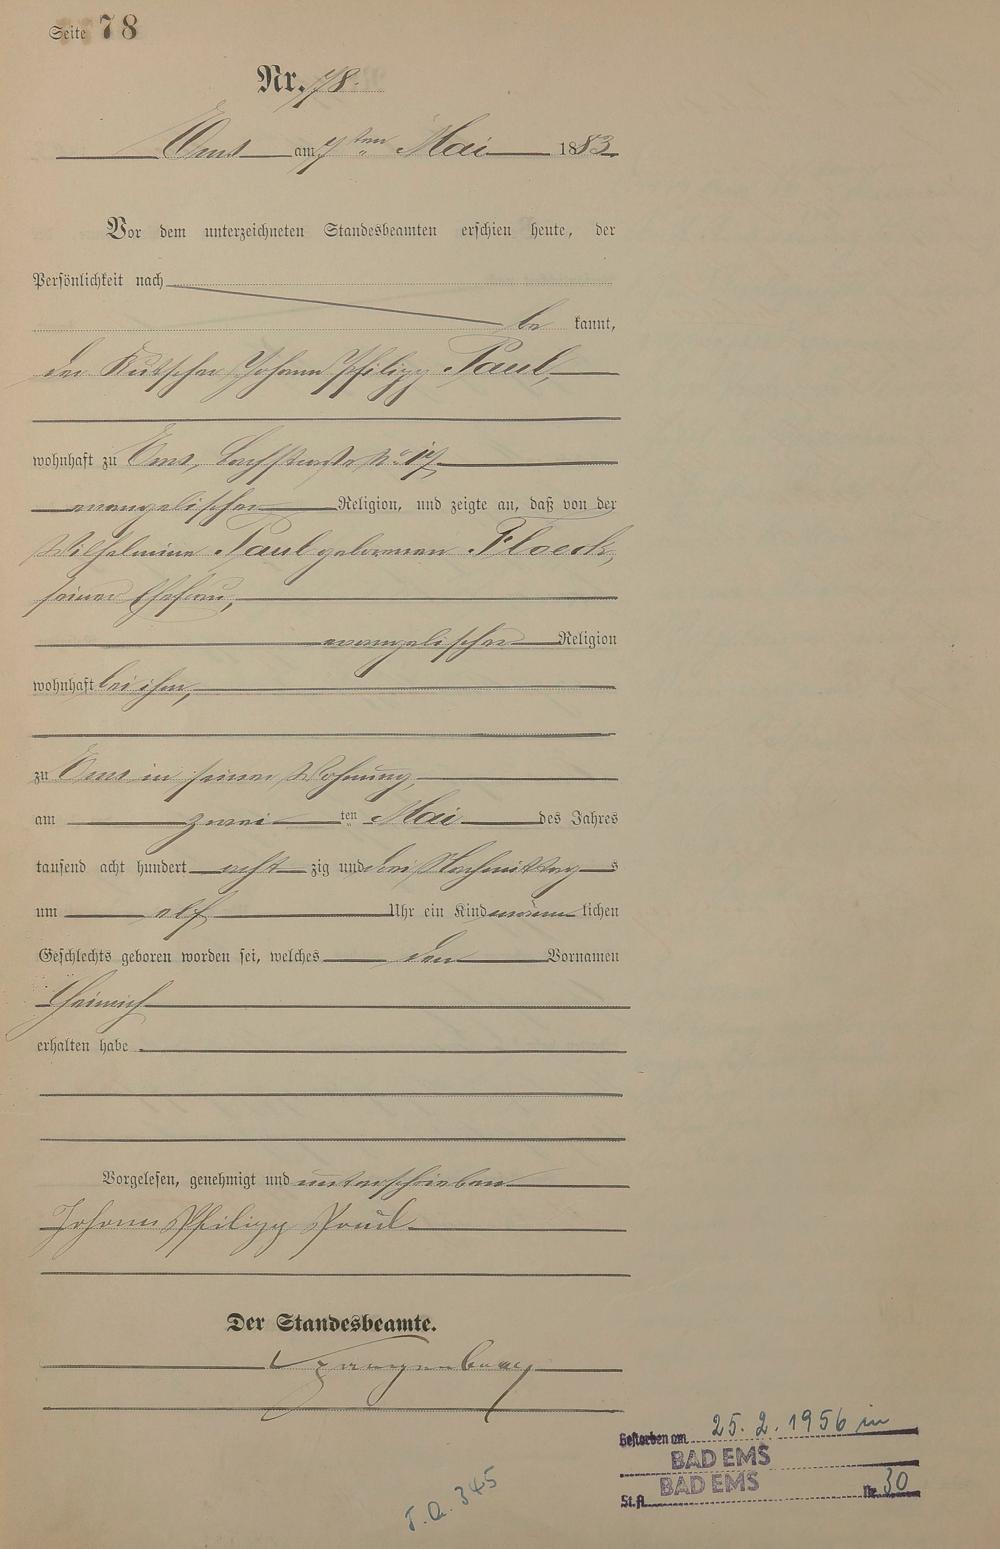 Seite 78
Nr. 78.
Ems am 7ten Mai 1883.
Vor dem unterzeichneten Standesbeamten erschien heute, der
Persönlichkeit nach
be kannt,
der Kutscher Johann Philipp Paul,
wohnhaft zu Ems, No. 17,
evangelischer Religion, und zeigte an, daß von der
Wilhelmine Paul geborenen Floeck,
seiner Ehefrau,
evangelischer Religion
wohnhaft bei ihm,
zu Ems in seiner Wohnung,
am zwei ten Mai des Jahres
tausend acht hundert acht zig und drei Nachmittags
um elf Uhr ein Kind männlichen
Geschlechts geboren worden sei, welches den Vornamen
Heinrich
erhalten habe.
Vorgelesen, genehmigt und unterschrieben
Johann Philipp Paul
Der Standesbeamte.
Gestorben am 25.2.1956 in
BAD EMS
St.A. BAD EMS Nr. 30
J.Q. 345